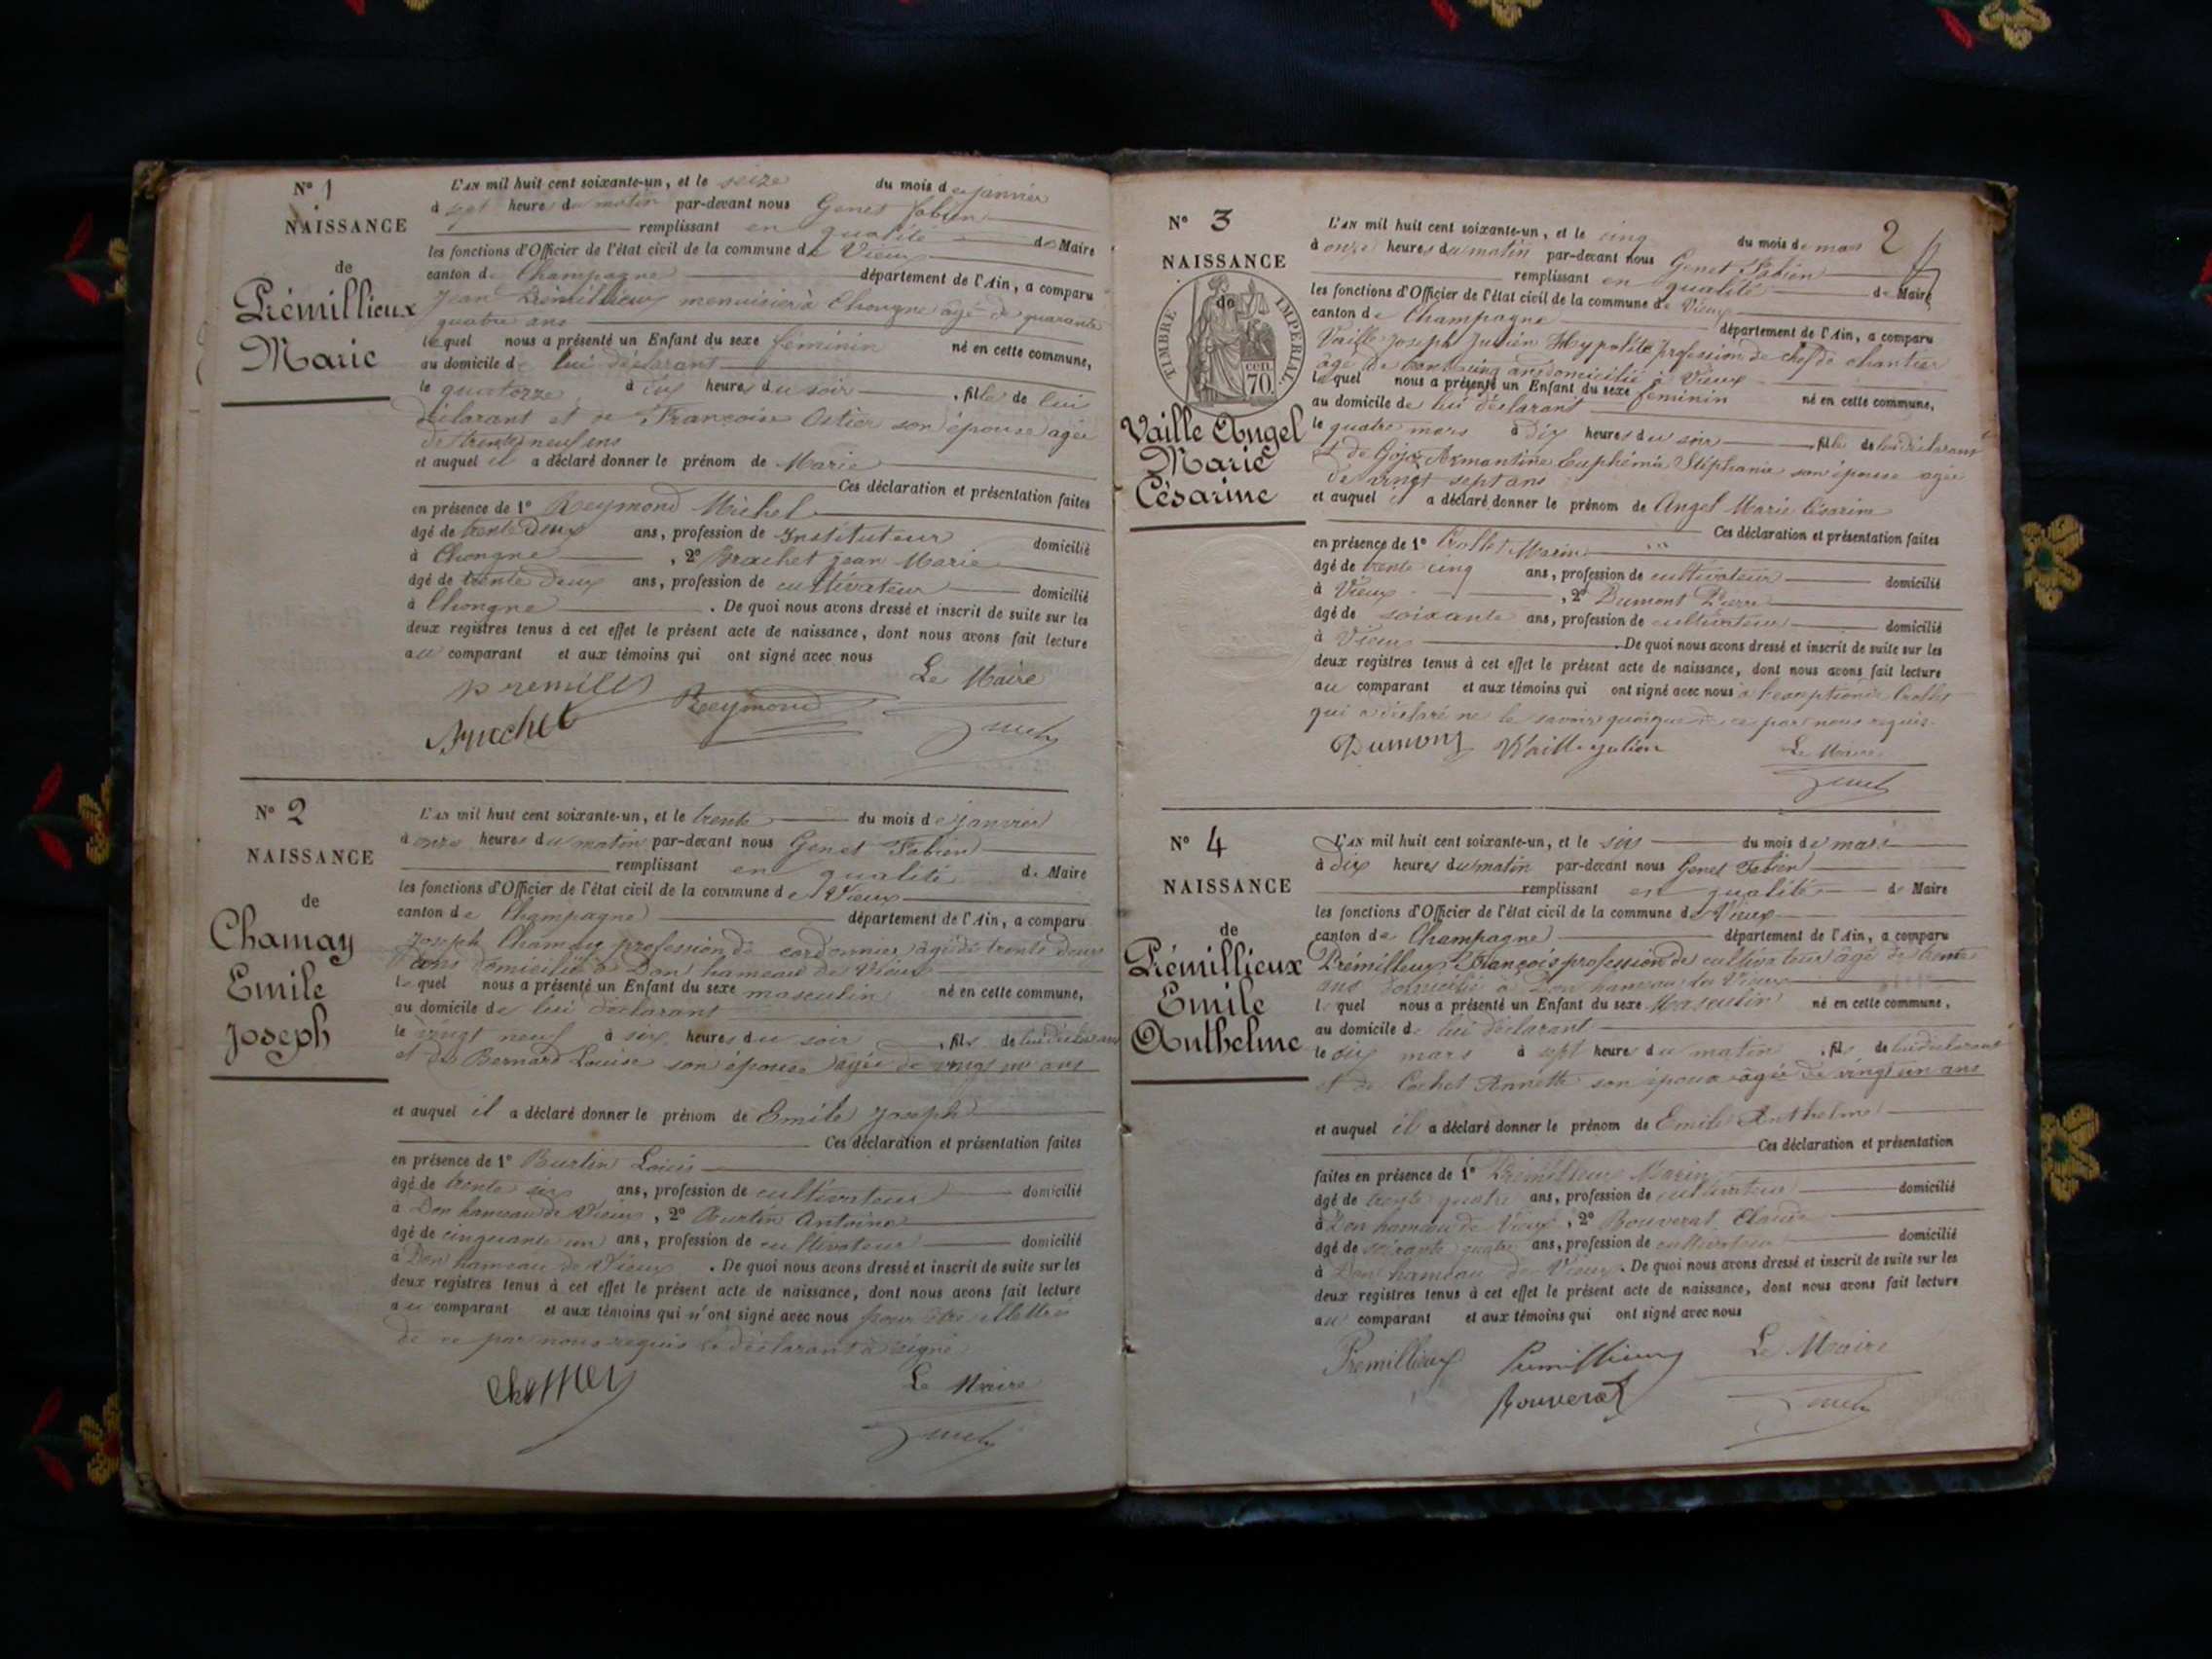 N° 1
NAISSANCE
de
Prémillieux
Marie
L'AN mil huit cent soixante-un, et le seize du mois de janvier
à sept heures du matin par-devant nous Genet fabien
remplissant en qualité de Maire
les fonctions d'Officier de l'état civil de la commune de Vieux
canton de Champagne département de l'Ain, a comparu
Jean Prémillieux menuisier à Chongne âgé de quarante
quatre ans
lequel nous a présenté un Enfant du sexe feminin né en cette commune,
au domicile de lui déclarant
le quatorze à six heures du soir, fille de lui
déclarant et de Françoise Ostier son épouse agée
de trente neuf ans
et auquel il a déclaré donner le prénom de Marie
Ces déclaration et présentation faites
en présence de 1° Reymond Michel
âgé de trente deux ans, profession de Instituteur domicilié
à Chongne, 2° Brachet jean Marie
âgé de trente deux ans, profession de cultivateur domicilié
à Chongne. De quoi nous avons dressé et inscrit de suite sur les
deux registres tenus à cet effet le présent acte de naissance, dont nous avons fait lecture
au comparant et aux témoins qui ont signé avec nous
Le Maire
Reymond
N° 2
NAISSANCE
de
Chamay
Emile
Joseph
L'AN mil huit cent soixante-un, et le trente du mois de janvier
à onze heures du matin par-devant nous Genet Fabien
remplissant en qualité de Maire
les fonctions d'Officier de l'état civil de la commune de Vieux
canton de Champagne département de l'Ain, a comparu
Joseph Chamay profession de cordonnier âgé de trente deux
ans domicilié à Don hameau de Vieux
lequel nous a présenté un Enfant du sexe masculin né en cette commune,
au domicile de lui déclarant
le vingt neuf à six heures du soir, fils de lui déclarant
et de Bernard Louise son épouse agée de vingt un ans
et auquel il a déclaré donner le prénom de Emile Joseph
Ces déclaration et présentation faites
en présence de 1° Burtin Louis
âgé de trente six ans, profession de cultivateur domicilié
à Don hameau de Vieux, 2° Burtin Antoine
âgé de cinquante un ans, profession de cultivateur domicilié
à Don hameau de Vieux. De quoi nous avons dressé et inscrit de suite sur les
deux registres tenus à cet effet le présent acte de naissance, dont nous avons fait lecture
au comparant et aux témoins qui n'ont signé avec nous pour être illettrés
de ce par nous requis le déclarant a signé
Le Maire
2
N° 3
NAISSANCE
de
TIMBRE IMPERIAL
70 cen
Vaille Angel
Marie
Césarine
L'AN mil huit cent soixante-un, et le cinq du mois de mars
à onze heures du matin par-devant nous Genet Fabien
remplissant en qualité de Maire
les fonctions d'Officier de l'état civil de la commune de Vieux
canton de Champagne département de l'Ain, a comparu
Vaille Joseph Julien Hypolite profession de chef de chantier
âgé de trente cinq ans domicilié à Vieux
lequel nous a présenté un Enfant du sexe feminin né en cette commune,
au domicile de lui déclarant
le quatre mars à dix heures du soir, fille de lui déclarant
et de Armantine Euphémie Stéphanie son épouse agée
de vingt sept ans
et auquel il a déclaré donner le prénom de Angel Marie Césarine
Ces déclaration et présentation faites
en présence de 1° Crollet Marin
âgé de trente cinq ans, profession de cultivateur domicilié
à Vieux, 2° Dumont Pierre
âgé de soixante ans, profession de cultivateur domicilié
à Vieux. De quoi nous avons dressé et inscrit de suite sur les
deux registres tenus à cet effet le présent acte de naissance, dont nous avons fait lecture
au comparant et aux témoins qui ont signé avec nous à l'exception de Crollet
qui a déclaré ne le savoir quoique de ce par nous requis
Dumont Vaille julien Le Maire
N° 4
NAISSANCE
de
Prémillieux
Emile
Anthelme
L'AN mil huit cent soixante-un, et le six du mois de mars
à dix heures du matin par-devant nous Genet Fabien
remplissant en qualité de Maire
les fonctions d'Officier de l'état civil de la commune de Vieux
canton de Champagne département de l'Ain, a comparu
Prémillieux François profession de cultivateur âgé de trente
ans domicilié à Don hameau de Vieux
lequel nous a présenté un Enfant du sexe Masculin né en cette commune,
au domicile de lui déclarant
le six mars à sept heures du matin, fils de lui déclarant
et de Cochet Annette son épouse âgée de vingt un ans
et auquel il a déclaré donner le prénom de Emile Anthelme
Ces déclaration et présentation
faites en présence de 1° Prémillieux Marin
âgé de quatre ans, profession de cultivateur domicilié
à Don hameau de Vieux, 2° Bouverat Claude
âgé de soixante quatre ans, profession de cultivateur domicilié
à Don hameau de Vieux. De quoi nous avons dressé et inscrit de suite sur les
deux registres tenus à cet effet le présent acte de naissance, dont nous avons fait lecture
au comparant et aux témoins qui ont signé avec nous
Premillieux Premillieux Le Maire
Bouverat